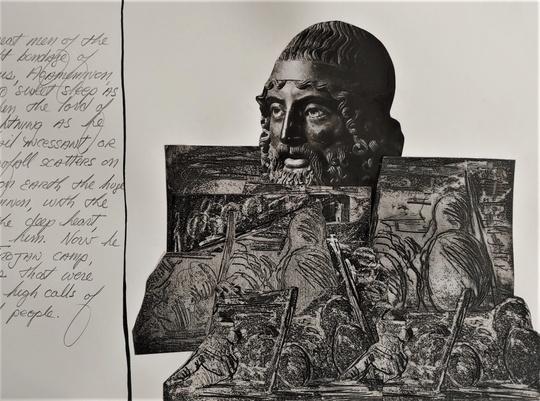 eat men of the
t bondage of
us, Agamemnon,
sweet sleep as
en the lord of
htning as he
ail incessant or
nfall scatters on
on earth the huge
mnon, with the
he deep heart,
him. Now he
rojan camp,
s that were
high calls of
people.